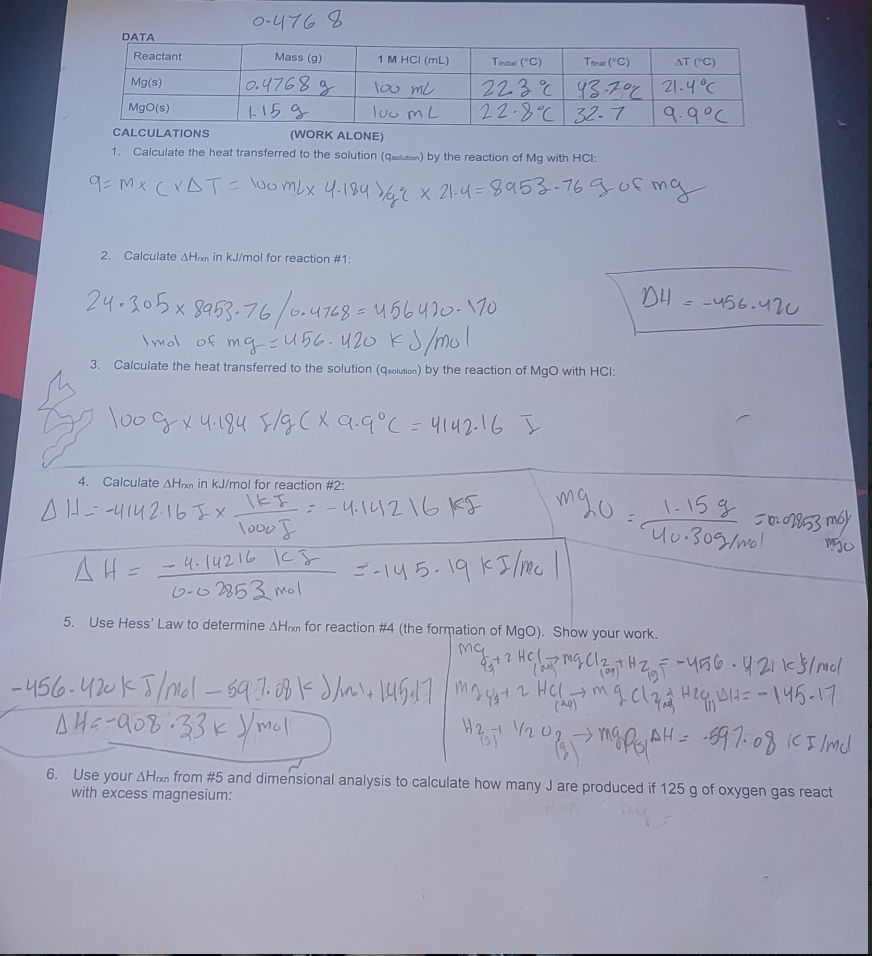 0.4768
DATA
Reactant Mass (g) 1 M HCl (mL) Tinitial (°C) Tfinal (°C) ΔT (°C)
Mg(s) 0.4768 g 100 mL 22.3°C 43.7°C 21.4°C
MgO(s) 1.15 g 100 mL 22.8°C 32.7 9.9°C
CALCULATIONS (WORK ALONE)
1. Calculate the heat transferred to the solution (qsolution) by the reaction of Mg with HCl:
q = m x C x ΔT = 100 mL x 4.184 J/g°C x 21.4 = 8953.76 g of mg
2. Calculate ΔHrxn in kJ/mol for reaction #1:
24.305 x 8953.76/0.4768 = 456420.170
1mol of mg = 456.420 kJ/mol
ΔH = -456.420
3. Calculate the heat transferred to the solution (qsolution) by the reaction of MgO with HCl:
100 g x 4.184 J/g C x 9.9°C = 4142.16 J
4. Calculate ΔHrxn in kJ/mol for reaction #2:
ΔH = -4142.16 J x 1kJ/1000 J = -4.14216 kJ
mgO = 1.15 g/40.30g/mol = 0.02853 mol mgO
ΔH = -4.14216 kJ/0.02853 mol = -145.19 kJ/mol
5. Use Hess' Law to determine ΔHrxn for reaction #4 (the formation of MgO). Show your work.
mg(s) + 2 HCl(aq) → mgCl2(aq) + H2(g) = -456.421 kJ/mol
-456.420 kJ/mol - 597.08 kJ/mol + 145.17
mg(s) + 2 HCl(aq) → mgCl2(aq) + H2O(l) ΔH = -145.17
ΔH = -908.33 kJ/mol
H2(g) + 1/2 O2(g) → mgO(s) ΔH = -597.08 kJ/mol
6. Use your ΔHrxn from #5 and dimensional analysis to calculate how many J are produced if 125 g of oxygen gas react
with excess magnesium: